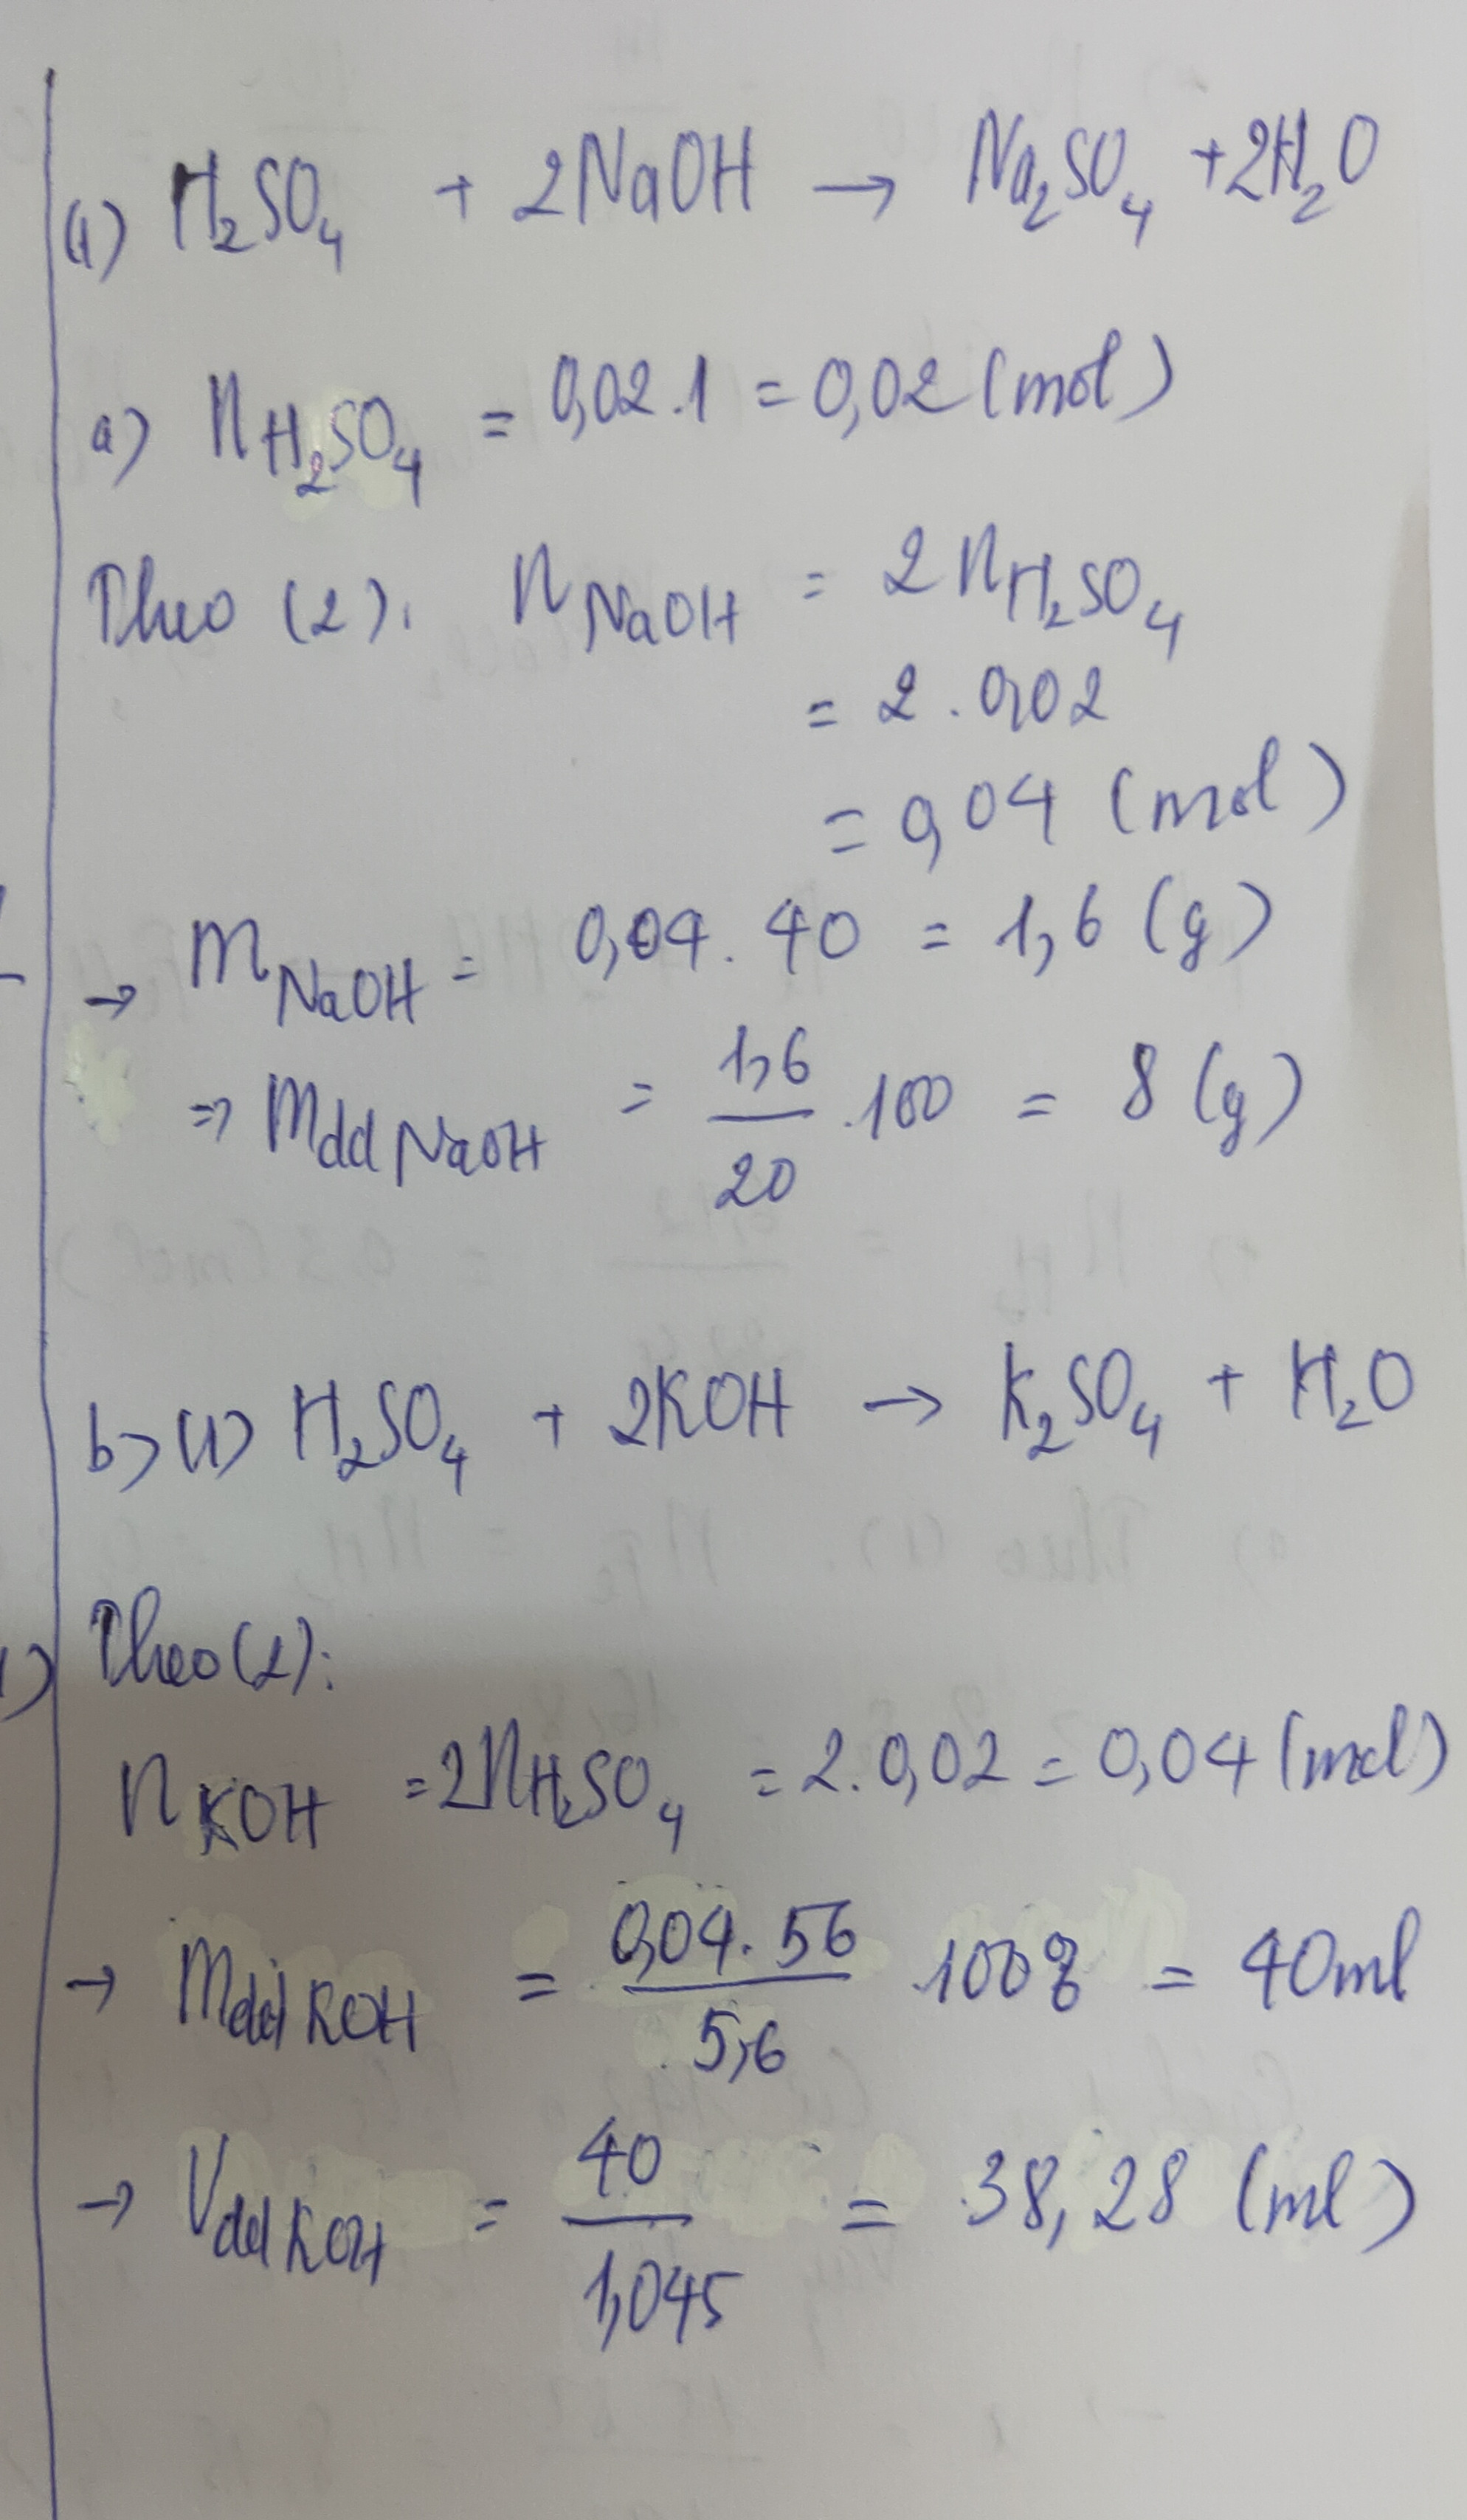 (1) H₂SO₄ + 2NaOH → Na₂SO₄ + 2H₂O
a) nH₂SO₄ = 0,02.1 = 0,02 (mol)
Theo (2): nNaOH = 2nH₂SO₄
= 2.0,02
= 0,04 (mol)
→ mNaOH = 0,04.40 = 1,6 (g)
⇒ mddNaOH = 1,6/20 .100 = 8 (g)
b) (1) H₂SO₄ + 2KOH → K₂SO₄ + H₂O
Theo (2):
nKOH = 2nH₂SO₄ = 2.0,02 = 0,04 (mol)
→ mddKOH = 0,04.56/5,6 .100% = 40ml
→ VddKOH = 40/1,045 = 38,28 (ml)